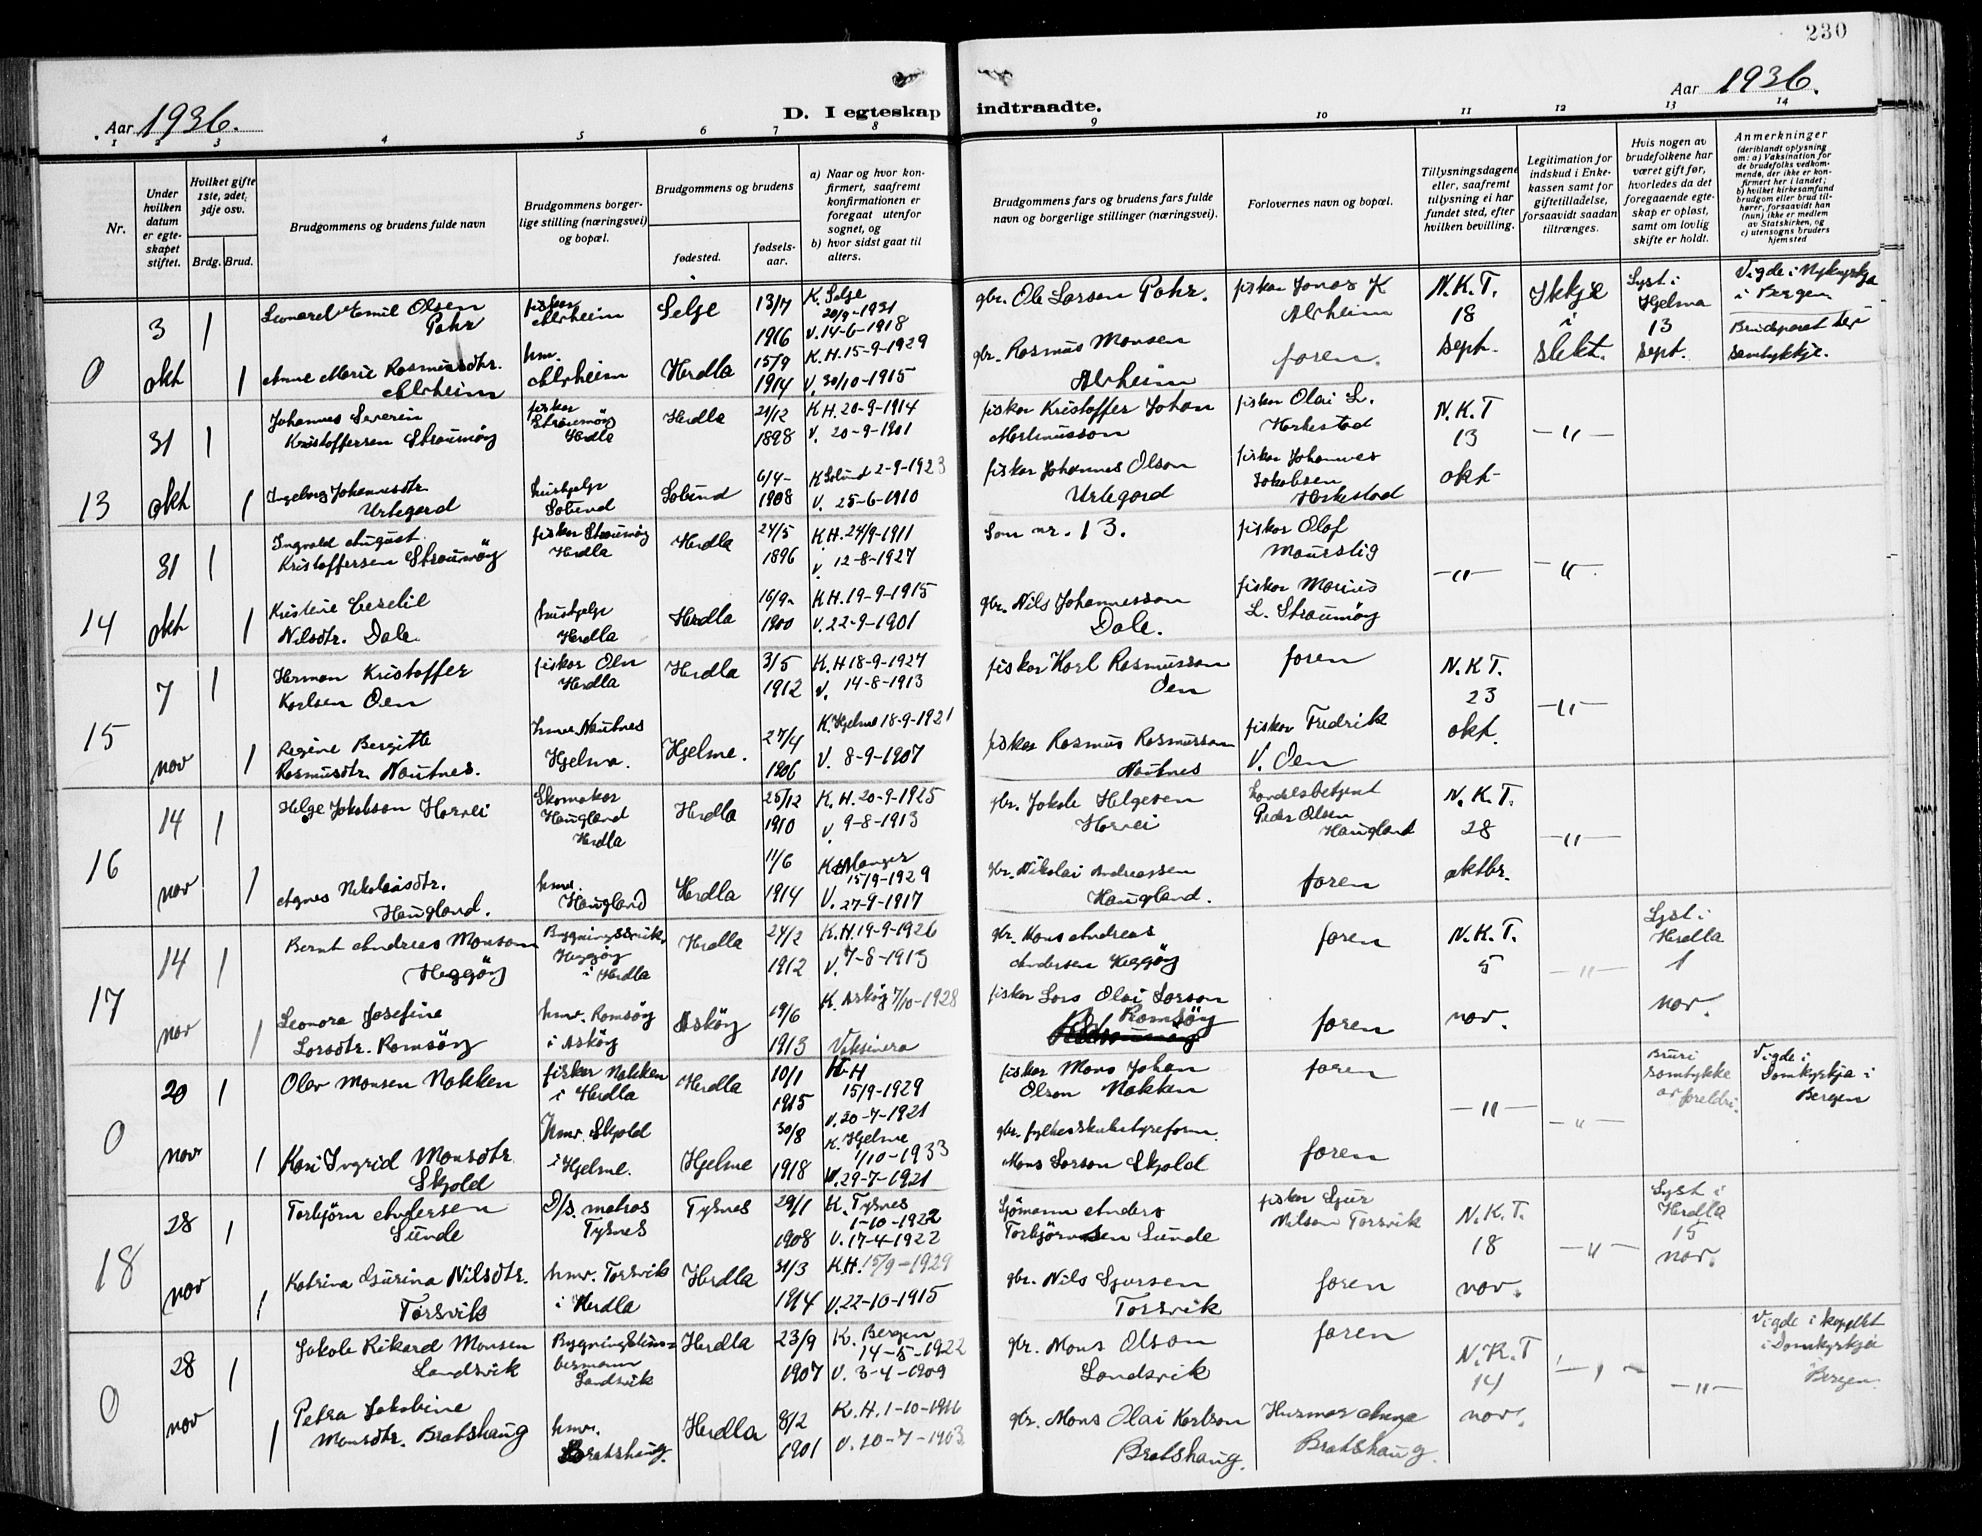 230
Aar 1936.
D. I egteskap indtraadte.
Aar 1936.
1 2 3 4 5 6 7 8 9 10 11 12 13 14
Nr.
Under hvilken datum er egteskapet stiftet.
Hvilket gifte 1ste, 2det, 3dje osv.
Brdg. Brud.
Brudgommens og brudens fulde navn
Brudgommens borgerlige stilling (næringsvei) og bopæl.
Brudgommens og brudens
fødested.
fødselsaar.
a) Naar og hvor konfirmert, saafremt konfirmationen er foregaat utenfor sognet, og
b) hvor sidst gaat til alters.
Brudgommens fars og brudens fars fulde navn og borgerlige stillinger (næringsvei).
Forlovernes navn og bopæl.
Tillysningsdagene eller, saafremt tillysning ei har fundet sted, efter hvilken bevilling.
Legitimation for indskud i Enkekassen samt for giftetilladelse, forsaavidt saadan tiltrænges.
Hvis nogen av brudefolkene har været gift før, hvorledes da det foregaaende egteskap er opløst, samt om lovlig skifte er holdt.
Anmerkninger
(deriblandt oplysning om: a) Vaksination for de brudefolks vedkommende, der ikke er konfirmert her i landet; b) hvilket kirkesamfund brudgom eller brud tilhører, forsaavidt han (hun) ikke er medlem av Statskirken, og c) utensogns bruders hjemsted
0
3 okt
1
Leonard Emil Olsen
Pahr
fiskar
Alvheim
Selje
13/7
1916
K. Selje
20/9-1931
V. 14-6-1918
gbr. Ole Larsen Pahr.
fiskar Jonas K
Alvheim
N.K.T.
18
sept.
Ikkje
i
slekt.
Lyst i
Hjelma
13
sept.
Vigde i Nykyrkja
i Bergen.
Brudparet ter
samtykkje.
1
Anne Marie Rasmusdtr.
Alvheim
hm.
Alvheim
Herdla
15/9
1914
K.H. 15-9-1929
V. 30/10-1915
gbr. Rasmus Monsen
Alvheim
faren.
13
31 okt
1
Johannes Severin
Kristoffersen Straumöy
fiskar
Straumöy
Herdla
Herdla
21/12
1898
K H. 20-9-1914
V. 20-9-1901
fiskar Kristoffer Johan
Martinusson
fiskar Olai L.
Herkestad
N.K.T
13
okt-
-"-
1
Ingeborg Johannesdtr.
Urtegard
hushjelp
Solund
Solund
6/4-
1908
K Solund 2-9-1923
V. 25-6-1910
fiskar Johannes Olson
Urtegard
fiskar Johannes
Jakobsen
Herkestad
14
31 okt
1
Ingvald August
Kristoffersen Straumöy
fiskar Straumöy
Herdla
Herdla
24/5
1896
K.H. 24/9-1911
V. 12-8-1927
Som nr. 13.
fiskar Olaf
Maurstig
-"-
-"-
1
Kristine Cecelie
Nilsdtr. Dale
hushjelp
Herdla
Herdla
16/9-
1900
K H. 19-9-1915
V. 22-9-1901
gbr. Nils Johannesson
Dale.
fiskar Marius
L. Straumöy
15
7 nov
1
Herman Kristoffer
Karlsen Oen
fiskar Oen
Herdla
Herdla
3/5
1912
K.H 18-9-1927
V. 14-8-1913
fiskar Karl Rasmusson
Oen
faren
N.K.T.
23
okt.
-"-
1
Regine Bergitte
Rasmusdtr. Nautnes.
hmv Nautnes
Hjelma.
Hjelme.
27/4
1906
K. Hjelme 18-9-1921
V. 8-9-1907
fiskar Rasmus Rasmusson
Nautnes
fiskar Fredrik
V. Oen
16
14 nov
1
Helge Jakobson Harvei
Skomakar
Haugland
Herdla
Herdla
25/12
1910
K.H. 20-9-1925
V. 9-8-1913
gbr. Jakob Helgesen
Harvei
handelsbetjent
Peder Olsen
Haugland
N.K.T.
28
oktbr.
-"-
1
Agnes Nikolaisdtr.
Haugland.
hmv.
Haugland
Herdla
11/6
1914
K. Manger
15/9-1929
V. 27-9-1917
gbr. Nikolai Andreassen
Haugland.
faren
17
14 nov
1
Bernt Andreas Monsson
Heggöy
Bygningssnik.
Heggöy
i Herdla
Herdla
24/2
1912
K.H. 19-9-1926
V. 7-8-1913
gbr. Mons Andreas
Andersen Heggöy
faren
N.K.T.
5
nov.
-"-
Lyst i
Herdla
1
nov.
1
Leonora Josefine
Larsdtr. Ramsöy
hmv. Ramsöy
i Asköy
Asköy
19/6
1913
K. Asköy 7/10-1928
Vaksinera
fiskar Lars Olai Larson
Ramsöy
faren
0
20 nov
1
Olav Monsen Nakken
fiskar Nakken
i Herdla
Herdla
10/1
1915
K H
15/9-1929
V. 20-7-1921
fiskar Mons Johan
Olson Nakken
faren
-"-
-"-
Bruri
samtykke
av foreldri.
Vigde i
Domkyrkja i
Bergen
1
Kari Ingrid Monsdtr
Skjold
hmv. Skjold
i Hjelme.
Hjelme
30/8
1918
K. Hjelme
1/10-1933
V. 29-7-1921
gbr. fylkesskulestyreform.
Mons Larson Skjold
faren
18
28 nov
1
Torbjörn Andersen
Sunde
D/s. matros
Tysnes
Tysnes
29/1
1908
K. Tysnes
1-10-1922
V. 17-4-1922
Sjömann Anders
Torbjörnsen Sunde
fiskar Sjur
Nilsen Torsvik
N.K.T.
18
nov.
-"-
Lyst i
Herdla
15
nov.
1
Katrina Gurina Nilsdtr.
Torsvik
hmv. Torsvik
i Herdla
Herdla
31/3
1914
K.H. 15/9-1929
V. 22-10-1915
gbr. Nils Sjursen
Torsvik
faren
0
28 nov
1
Jakob Rikard Monsen
Landsvik
Bygningstöm=
bermann
Landsvik
Herdla
23/9
1907
K. Bergen
14-5-1922
V. 3-4-1909
gbr. Mons Olson
Landsvik
faren
N.K.T
14
nov.
-"-
-"-
Vigde i kapellet
i Domkyrkja
i Bergen
1
Petra Jakobine
Monsdtr. Bratshaug
hmv.
Bratshaug.
Herdla
8/2
1901
K.H. 1-10-1916
V. 20-7-1903
gbr. Mons Olai Karlson
Bratshaug.
Husmor Anna
Bratshaug.